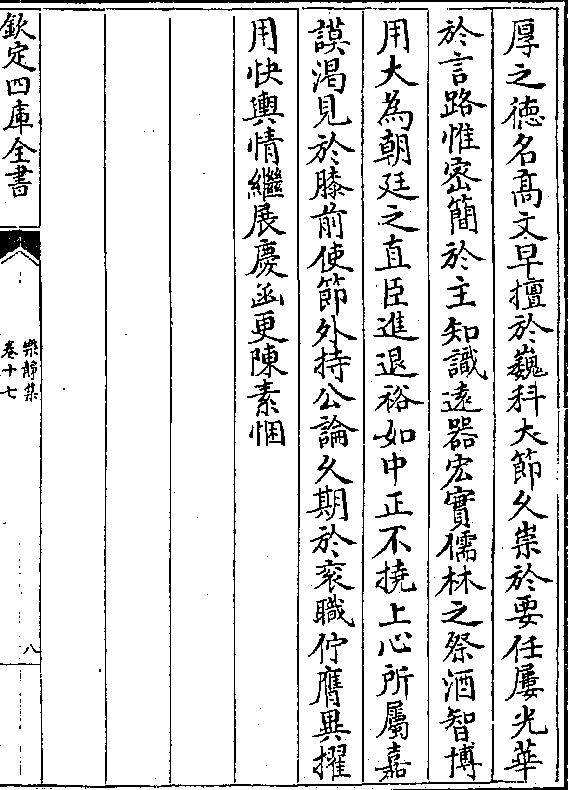 厚之徳名髙文早擅於巍科大節久崇於要任屢光華
於言路惟密簡於主知識遠器宏實儒林之祭酒智博
用大為朝廷之直臣進退裕如中正不撓上心所屬嘉
謨渇見於膝前使節外持公論久期於衮職佇膺異擢
用快輿情繼展慶函更陳素悃
欽定四庫全書
樂靜集
卷十七
八